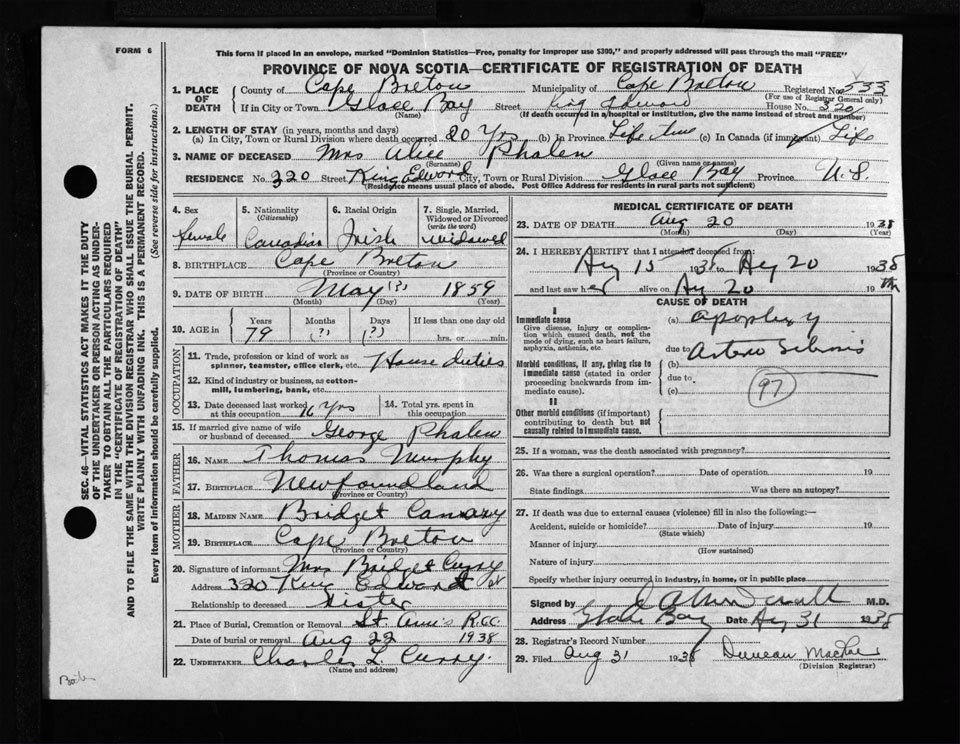 FORM 6
This form if placed in an envelope, marked "Dominion Statistics—Free, penalty for improper use $300," and properly addressed will pass through the mail "FREE"
PROVINCE OF NOVA SCOTIA—CERTIFICATE OF REGISTRATION OF DEATH
1. PLACE OF DEATH
County of Cape Breton Municipality of Cape Breton Registered No. 533
(For use of Registrar General only)
If in City or Town Glace Bay Street King Edward House No. 320
(Name) (If death occurred in a hospital or institution, give the name instead of street and number)
2. LENGTH OF STAY (in years, months and days)
(a) In City, Town or Rural Division where death occurred 20 Yrs (b) In Province Life time (c) In Canada (if immigrant) Life
3. NAME OF DECEASED Mrs Alice Phalen
(Surname) (Given name or names)
RESIDENCE No. 320 Street King Edward City, Town or Rural Division Glace Bay Province N.S.
(Residence means usual place of abode. Post Office Address for residents in rural parts not sufficient)
4. Sex Female
5. Nationality (Citizenship) Canadian
6. Racial Origin Irish
7. Single, Married, Widowed or Divorced (write the word) Widowed
8. BIRTHPLACE Cape Breton
(Province or Country)
9. DATE OF BIRTH May (?) 1859
(Month) (Day) (Year)
10. AGE in Years 79 Months (?) Days (?) If less than one day old hrs. or min.
OCCUPATION
11. Trade, profession or kind of work as spinner, teamster, office clerk, etc. House duties
12. Kind of industry or business, as cotton-mill, lumbering, bank, etc.
13. Date deceased last worked at this occupation 16 Yrs 14. Total yrs. spent in this occupation
15. If married give name of wife or husband of deceased George Phalen
FATHER
16. NAME Thomas Murphy
17. BIRTHPLACE Newfoundland
(Province or Country)
MOTHER
18. MAIDEN NAME Bridget
19. BIRTHPLACE Cape Breton
(Province or Country)
20. Signature of informant Mrs Bridget Curry
Address 320 King Edward St
Relationship to deceased Sister
21. Place of Burial, Cremation or Removal St. Ann's R.C.
Date of burial or removal Aug 22 1938
22. UNDERTAKER Charles L. Curry.
(Name and address)
MEDICAL CERTIFICATE OF DEATH
23. DATE OF DEATH Aug 20 1938
(Month) (Day) (Year)
24. I HEREBY CERTIFY that I attended deceased from:
Ag 15 1938 to Ag 20 1938
and last saw her alive on Ag 20 19
CAUSE OF DEATH
I
Immediate cause
Give disease, injury or complication which caused death, not the mode of dying, such as heart failure, asphyxia, asthenia, etc.
(a) apoplexy
due to Arterio Sclerosis
Morbid conditions, if any, giving rise to immediate cause (stated in order proceeding backwards from immediate cause).
(b)
due to
(c)
97
II
Other morbid conditions (if important) contributing to death but not causally related to immediate cause.
25. If a woman, was the death associated with pregnancy?
26. Was there a surgical operation? Date of operation 19
State findings Was there an autopsy?
27. If death was due to external causes (violence) fill in also the following:—
Accident, suicide or homicide? Date of injury 19
(State which)
Manner of injury
(How sustained)
Nature of injury
Specify whether injury occurred in industry, in home, or in public place
Signed by M.D.
Address Glace Bay Date Ag 31 1938
28. Registrar's Record Number
29. Filed Aug 31 1938 Duncan MacRae
(Division Registrar)
SEC. 46—VITAL STATISTICS ACT MAKES IT THE DUTY
OF THE UNDERTAKER OR PERSON ACTING AS UNDER-
TAKER TO OBTAIN ALL THE PARTICULARS REQUIRED
IN THE "CERTIFICATE OF REGISTRATION OF DEATH"
AND TO FILE THE SAME WITH THE DIVISION REGISTRAR WHO SHALL ISSUE THE BURIAL PERMIT.
WRITE PLAINLY WITH UNFADING INK. THIS IS A PERMANENT RECORD.
Every item of information should be carefully supplied. (See reverse side for instructions.)